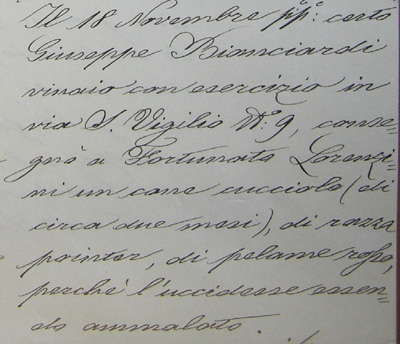 Il 18 Novembre p.p: certo
Giuseppe Bianciardi
vinaio con esercizio in
via S. Vigilio N.º 9, conse=
gnò a Fortunato Lorenzi=
ni un cane cucciolo (di
circa due mesi), di razza
pointer, di pelame rosso,
perché l'uccidesse essen=
do ammalato.